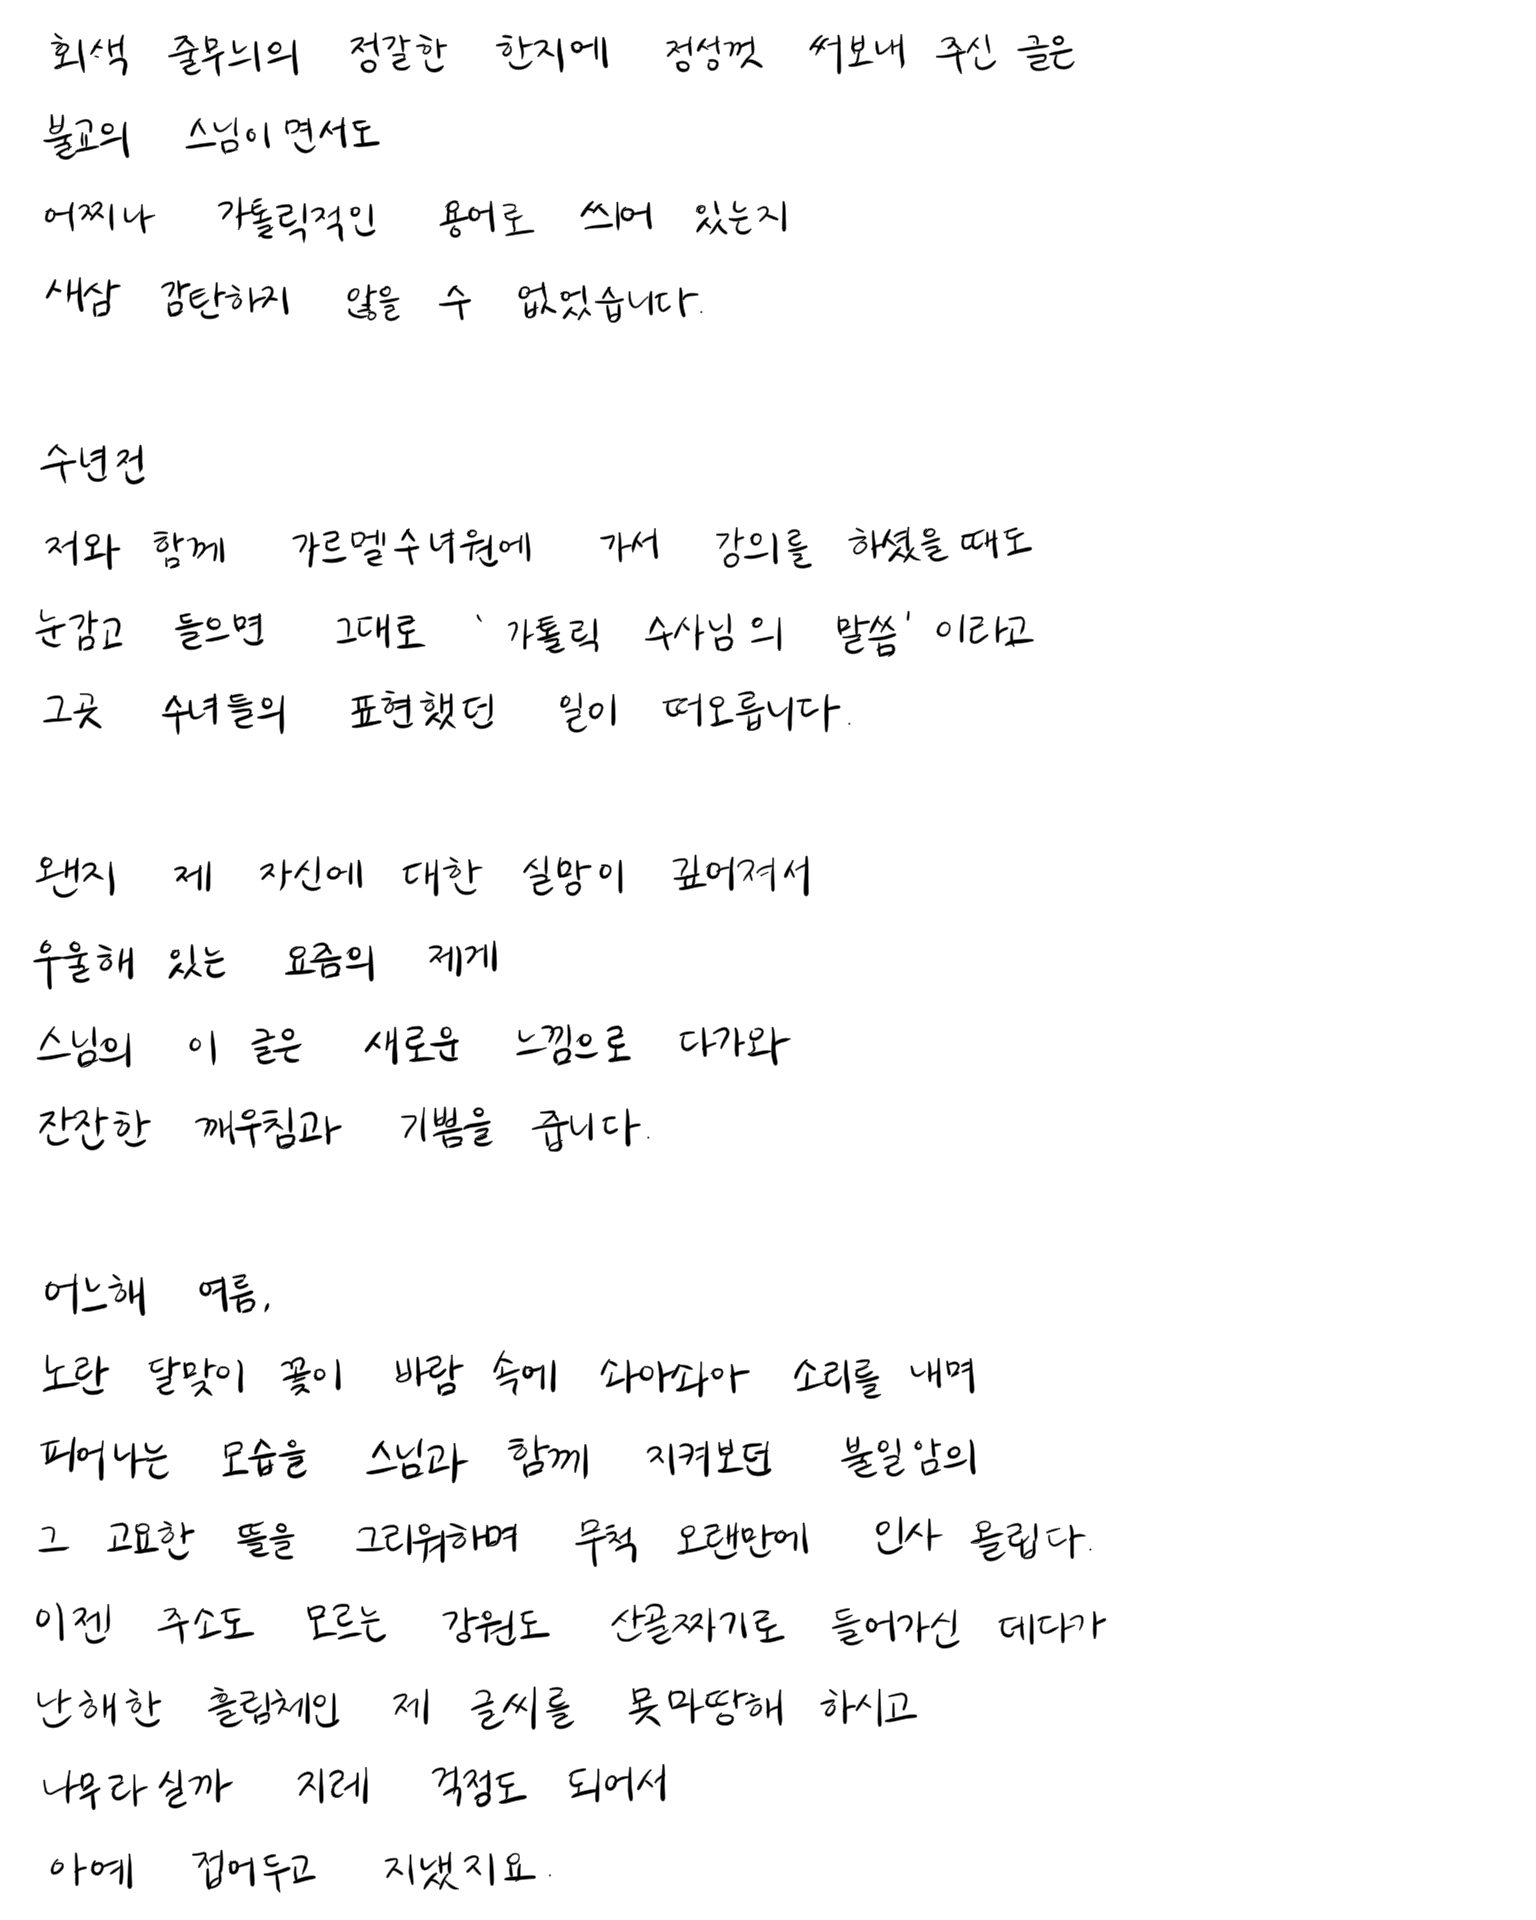 회색 줄무늬의 정갈한 한지에 정성껏 써보내 주신 글은
불교의 스님이면서도
어찌나 가톨릭적인 용어로 씌어 있는지
새삼 감탄하지 않을 수 없었습니다.
수년전
저와 함께 가르멜수녀원에 가서 강의를 하셨을때도
눈감고 들으면 그대로 '가톨릭 수사님의 말씀'이라고
그곳 수녀들의 표현했던 일이 떠오릅니다.
왠지 제 자신에 대한 실망이 깊어져서
우울해 있는 요즘의 제게
스님의 이 글은 새로운 느낌으로 다가와
잔잔한 깨우침과 기쁨을 줍니다.
어느해 여름,
노란 달맞이 꽃이 바람 속에 솨아솨아 소리를 내며
피어나는 모습을 스님과 함께 지켜보던 불일암의
그 고요한 뜰을 그리워하며 무척 오랜만에 인사 올립다.
이젠 주소도 모르는 강원도 산골짜기로 들어가신 데다가
난해한 흘림체인 제 글씨를 못마땅해 하시고
나무라실까 지레 걱정도 되어서
아예 접어두고 지냈지요.